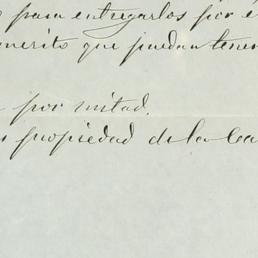 para entregarlos por é
merito que puedan tener
por mitad.
propiedad de la ca